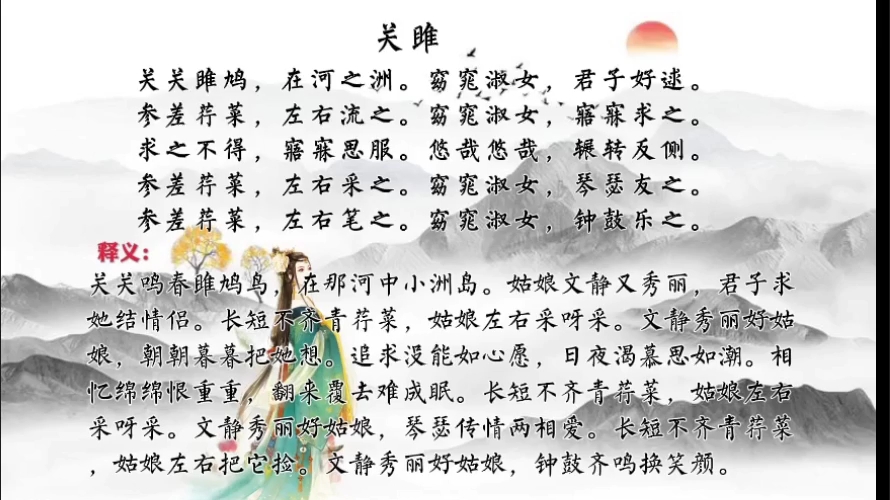 关雎
关关雎鸠，在河之洲。窈窕淑女，君子好逑。
参差荇菜，左右流之。窈窕淑女，寤寐求之。
求之不得，寤寐思服。悠哉悠哉，辗转反侧。
参差荇菜，左右采之。窈窕淑女，琴瑟友之。
参差荇菜，左右笔之。窈窕淑女，钟鼓乐之。
释义：
关关鸣春雎鸠鸟，在那河中小洲岛。姑娘文静又秀丽，君子求
她结情侣。长短不齐青荇菜，姑娘左右采呀采。文静秀丽好姑
娘，朝朝暮暮把她想。追求没能如心愿，日夜渴慕思如潮。相
忆绵绵恨重重，翻来覆去难成眠。长短不齐青荇菜，姑娘左右
采呀采。文静秀丽好姑娘，琴瑟传情两相爱。长短不齐青荇菜
，姑娘左右把它捡。文静秀丽好姑娘，钟鼓齐鸣换笑颜。